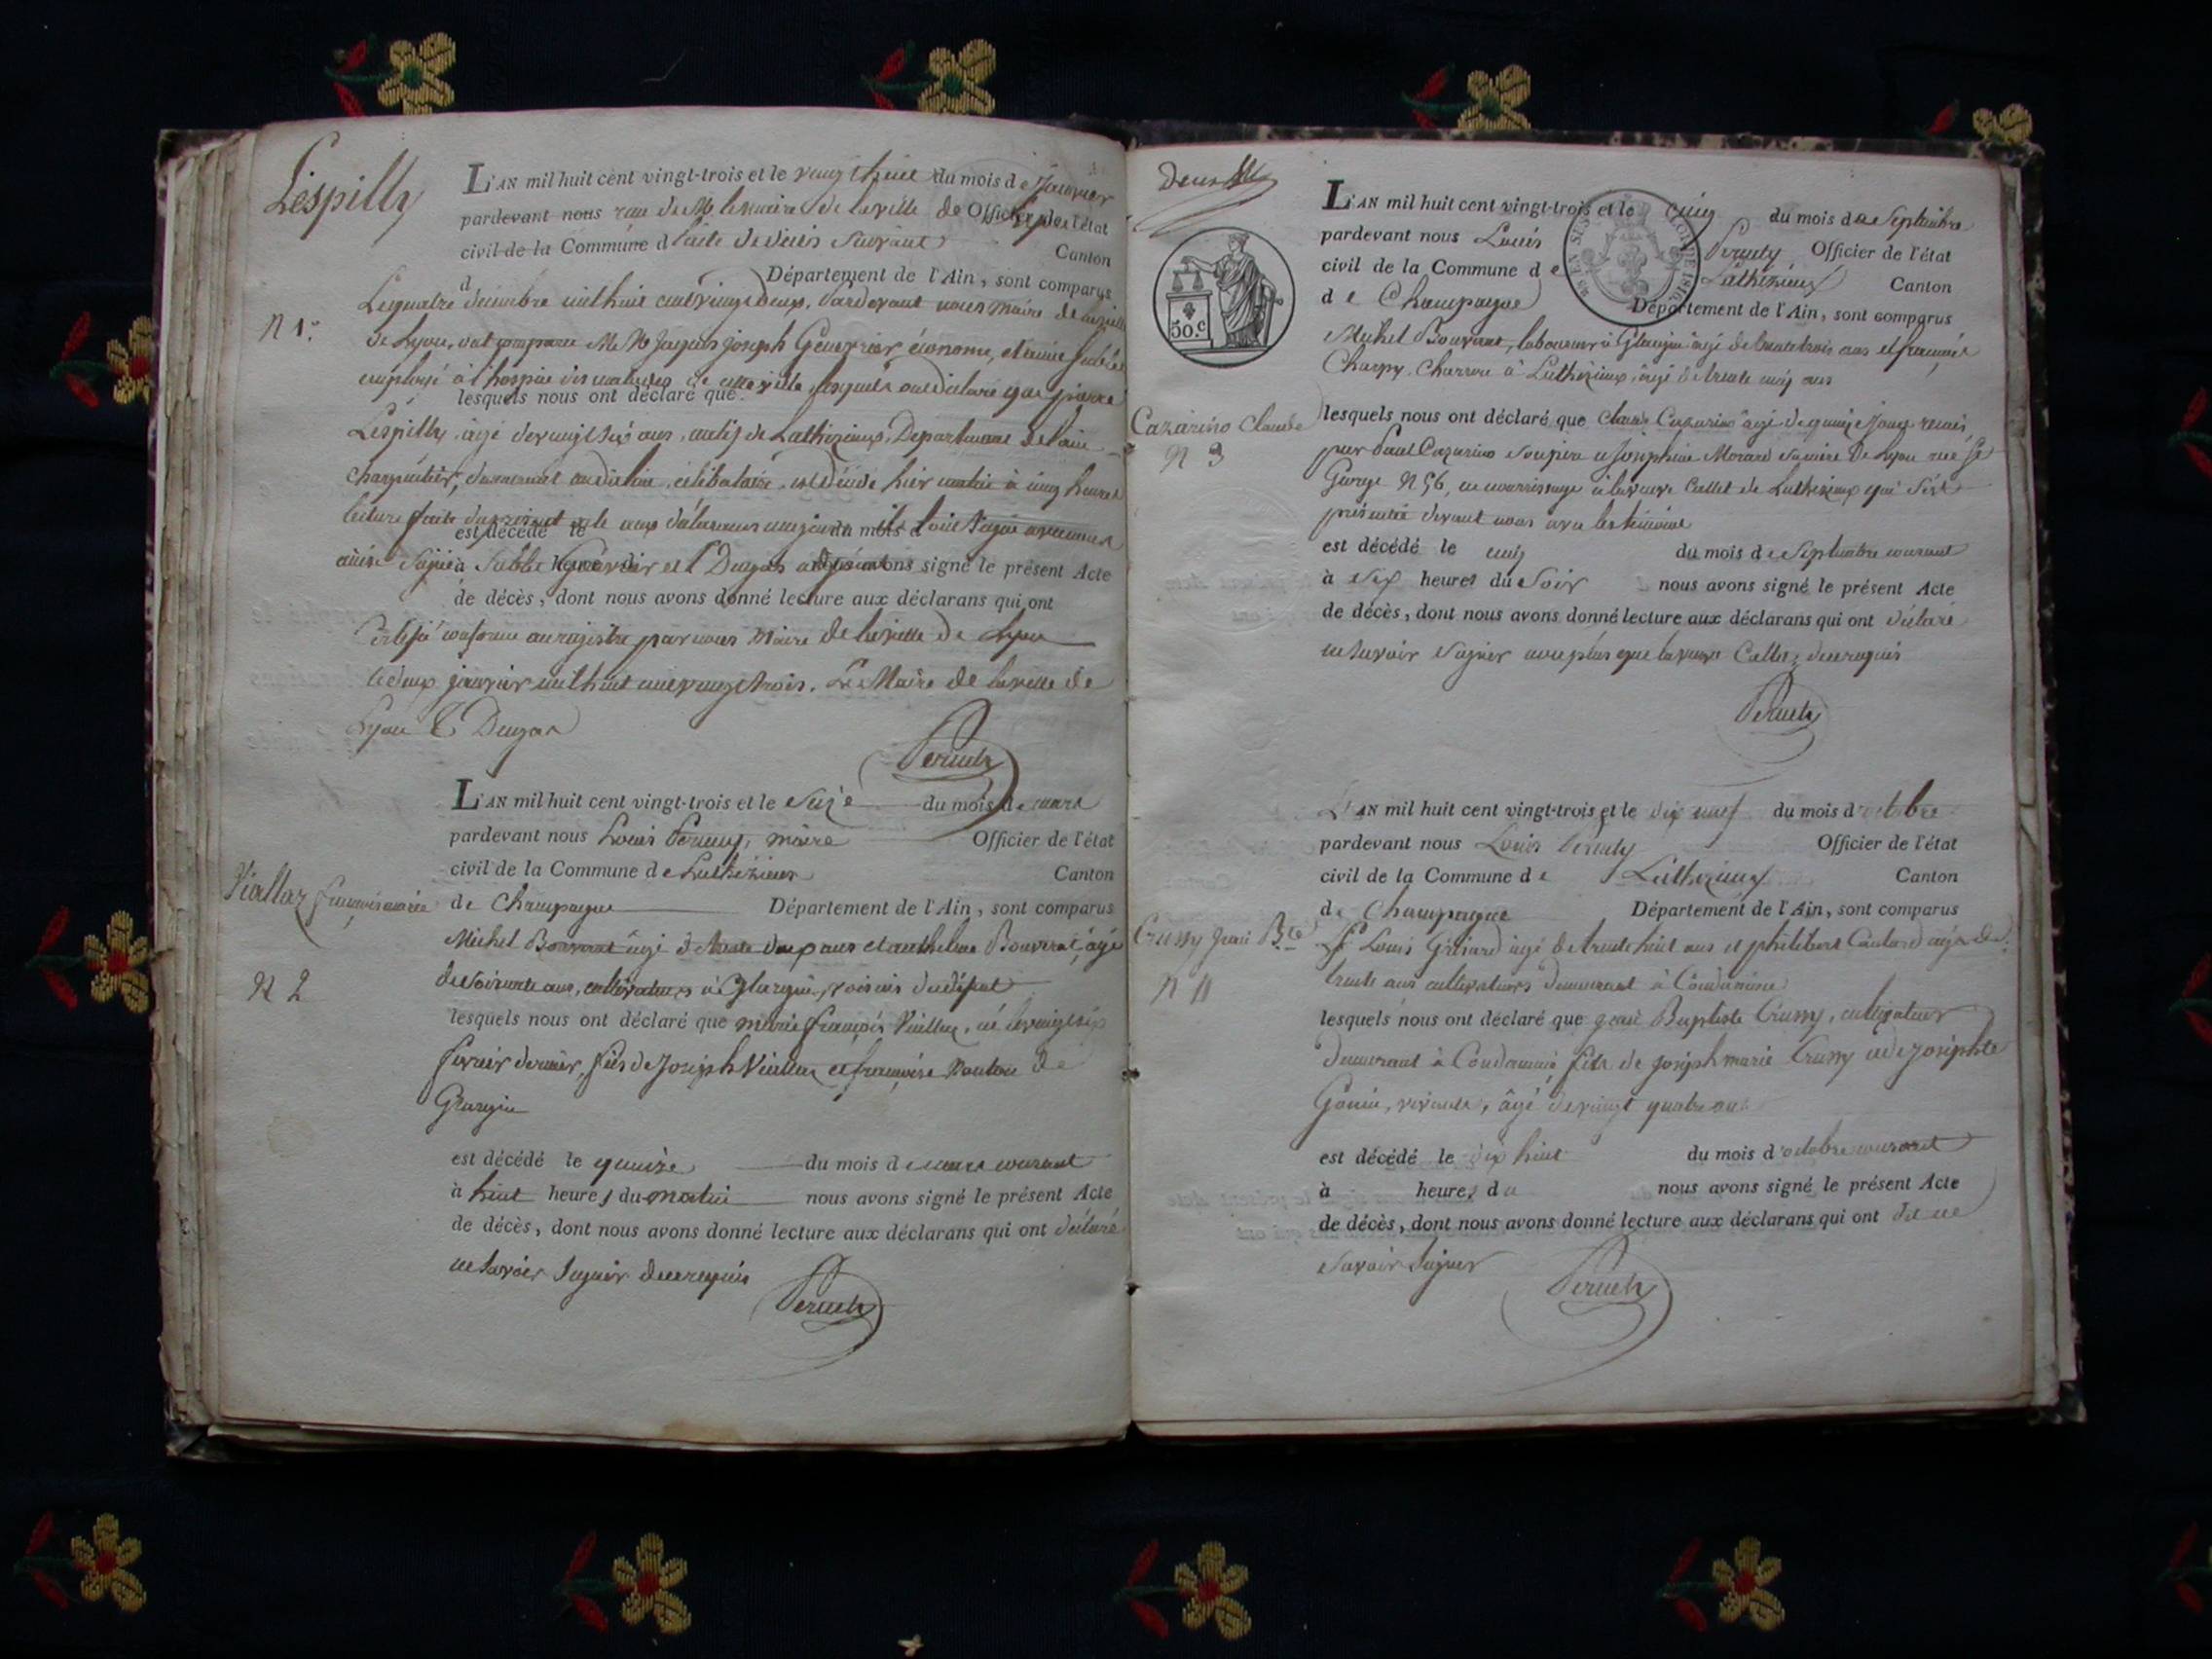 Lespilly
L'AN mil huit cent vingt-trois et le vingt huit du mois de Janvier
pardevant nous de M. le maire de la ville de Officier de l'état
civil de la Commune d suivant
Canton
d Département de l'Ain, sont comparus
N 1er
Le quatre décembre mil huit cent vingt deux. Pardevant nous maire de la ville
de Lyon, ont comparu MM Jacques Joseph Genevrier, économe, et
employé à l'hospice des malades de cette ville lesquels ont déclaré que pierre
lesquels nous ont déclaré que
Lespilly, âgé de vingt six ans, natif de Luthézieux, Département de l'ain
charpentier, célibataire, est décédé hier matin à cinq heures
lecture faite du présent
est décédé le du mois d
à heure d nous avons signé le présent Acte
de décès, dont nous avons donné lecture aux déclarans qui ont
Certifié conforme au registre par nous Maire de la ville de Lyon
le deux janvier mil huit cent vingt trois. Le Maire de la ville de
Lyon Dugas
Peruety
L'AN mil huit cent vingt-trois et le seize du mois de mars
pardevant nous Louis Peruety, maire Officier de l'état
civil de la Commune de Luthézieux Canton
Viallaz françois marie
de Champagne Département de l'Ain, sont comparus
Michel Bouvrat âgé de trente deux ans et anthelme Bouvrat, âgé
N 2
de soixante ans, cultivateurs à voisins du défunt
lesquels nous ont déclaré que marie françois Viallaz, né le vingt six
fevrier dernier, fils de Joseph Viallaz et françoise de
est décédé le quinze du mois de mars courant
à huit heures du matin nous avons signé le présent Acte
de décès, dont nous avons donné lecture aux déclarans qui ont déclaré
ne savoir signer de ce requis
Peruety
deux
30.c
L'AN mil huit cent vingt-trois et le cinq du mois de Septembre
pardevant nous Louis Peruety Officier de l'état
civil de la Commune de Luthézieux Canton
de Champagne Département de l'Ain, sont comparus
Michel Bouvrat, laboureur à âgé de trente trois ans et françois
Charpy, charron à Luthezieux, âgé de trente cinq ans
Cazarino Claude
N 3
lesquels nous ont déclaré que Claude Cazarino âgé de quinze jours
par Paul Cazarino son père et Josephine Morard sa mère de Lyon rue St
George N 56, en nourrissage à la veuve Callet de Luthezieux qui s'est
présentée devant nous avec les témoins
est décédé le cinq du mois de Septembre courant
à Six heures du Soir nous avons signé le présent Acte
de décès, dont nous avons donné lecture aux déclarans qui ont déclaré
ne savoir signer non plus que la veuve Callet de ce requis
Peruety
L'AN mil huit cent vingt-trois et le dix neuf du mois d'octobre
pardevant nous Louis Peruety Officier de l'état
civil de la Commune de Luthezieux Canton
de Champagne Département de l'Ain, sont comparus
Crussy Jean Bte
N 4
Louis Grisard âgé de trente huit ans et philibert Coutard âgé de
trente ans cultivateurs demeurant à Condamine
lesquels nous ont déclaré que jean Baptiste Crussy, cultivateur
demeurant à Condamine fils de joseph marie Crussy et de josephte
Gonin, vivants, âgé de vingt quatre ans
est décédé le dix huit du mois d'octobre courant
à heures du nous avons signé le présent Acte
de décès, dont nous avons donné lecture aux déclarans qui ont dit ne
savoir signer
Peruety